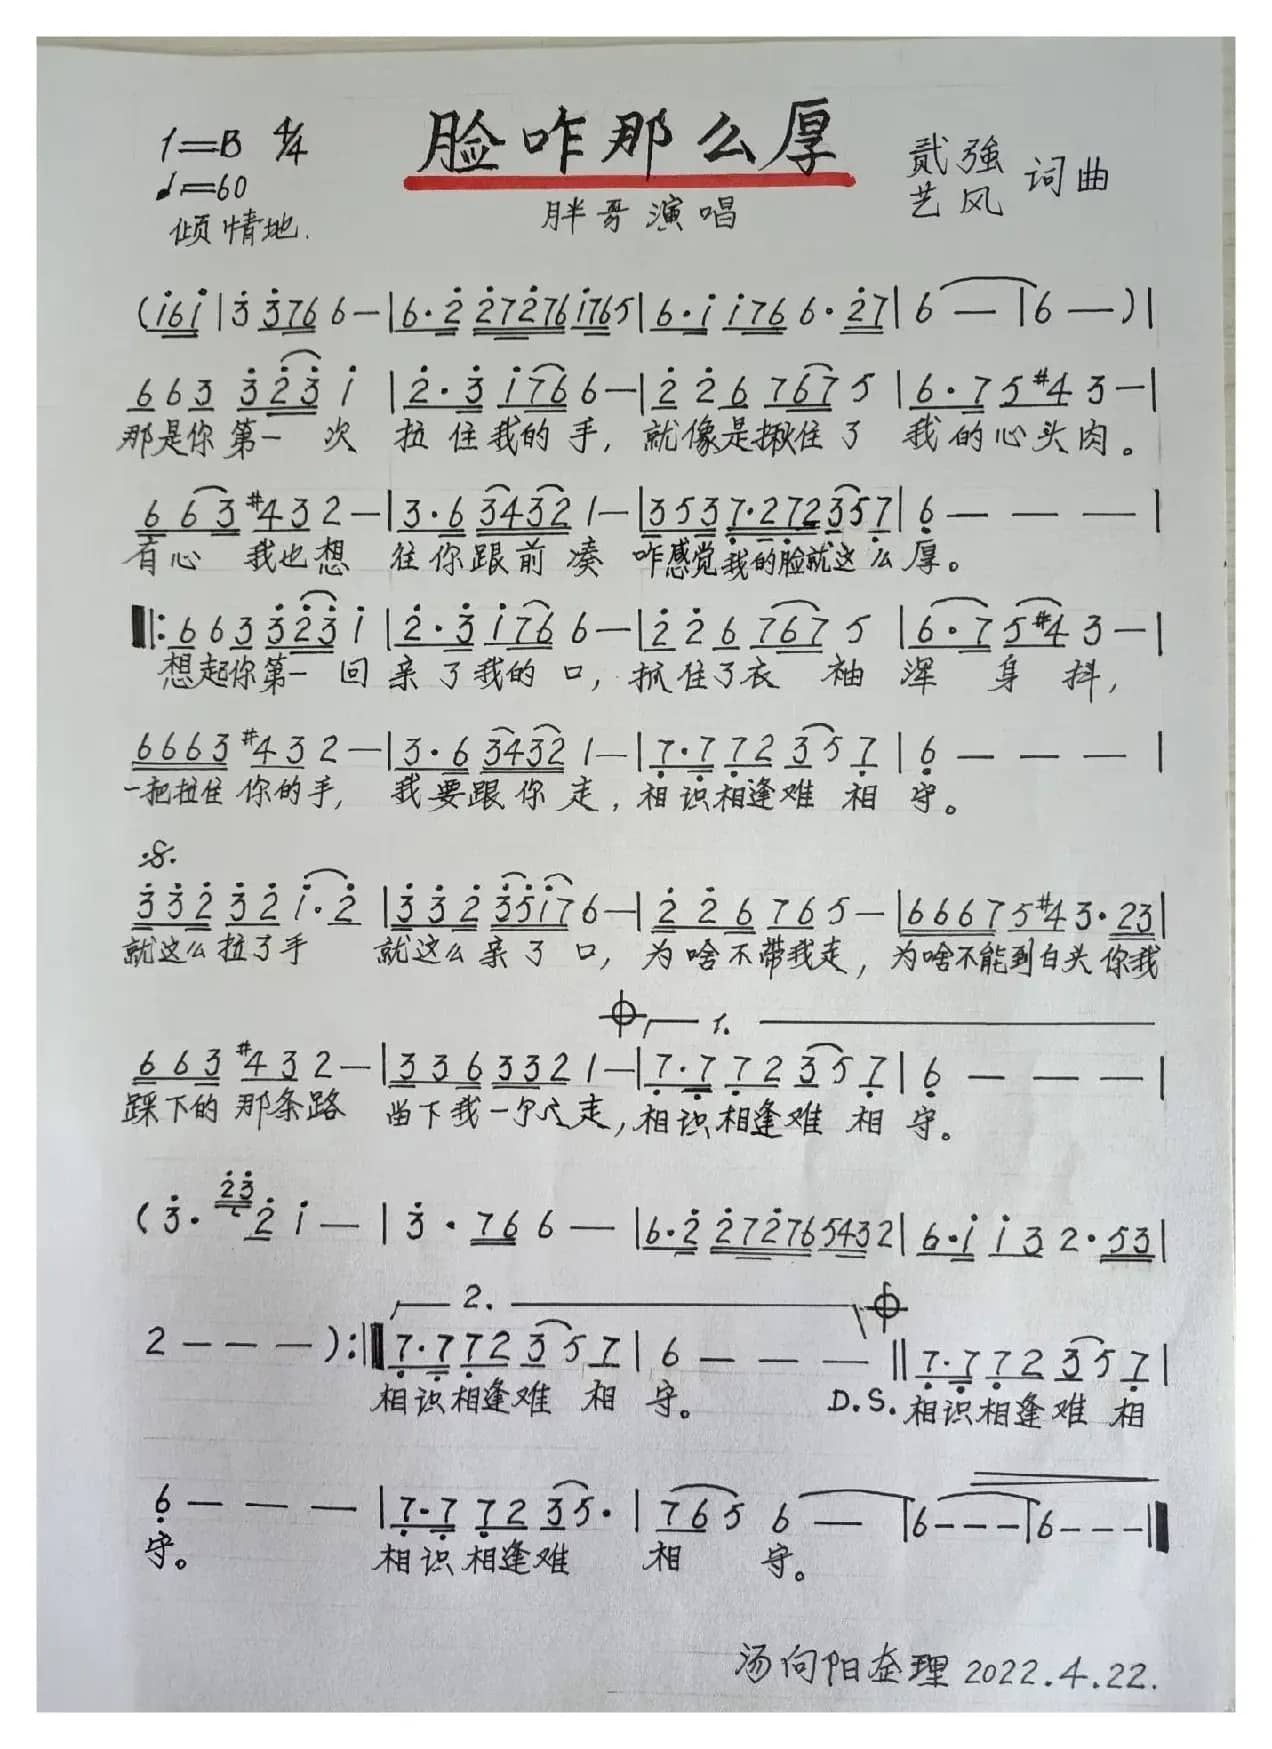 脸咋那么厚
1=B 4/4
♩=60
倾情地.
胖哥演唱
贰强 艺风 词曲
(i6i|3 3376 6—|6·2 27276 i765|6·i i176 6·27|6 —|6 —)|
663 323 i|2·3 i76 6—|2 26 767 5|6·7 5#4 3—|
那是你第一次 拉住我的手, 就像是揪住了 我的心头肉。
6 63 #43 2—|3·6 3432 1—|353 7·272 357|6 — — —|
有心 我也想 往你跟前凑 咋感觉我的脸就这么厚。
‖:663 323 i|2·3 i76 6—|2 26 767 5|6·7 5#4 3—|
想起你第一回 亲了我的口, 抓住了衣袖 浑身抖,
6663 #43 2—|3·6 3432 1—|7·7 72 35 7|6 — — —|
一把拉住你的手, 我要跟你走, 相识相逢难相守。
:S:
332 32 i·2|332 35i7 6—|2 26 765—|6667 5#4 3·23|
就这么拉了手 就这么亲了口, 为啥不带我走, 为啥不能到白头你我
1.
663 #43 2—|336 332 1—|7·7 72 35 7|6 — — —|
踩下的那条路 留下我一个人走, 相识相逢难相守。
(3· 23 2 i —|3·76 6 —|6·2 272765432|6·i i3 2·53|
2.
2 — — —):‖7·7 72 35 7|6 — — —‖7·7 72 35 7|
相识相逢难相守。 D.S. 相识相逢难相
6 — — —|7·7 72 35·|765 6 —|6———|6———‖
守。 相识相逢难 相守。
汤向阳整理 2022.4.22.